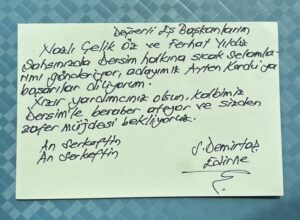 Değerli Eş Başkanlarım
Nazlı Çelik Öz ve Ferhat Yıldız
Şahsınızda Dersim halkına sıcak selamla-
rımı gönderiyor, adayımız Ayten Kordu'ya
başarılar diliyorum.
Xızır yardımcınız olsun. Kalbimiz
Dersim'le beraber atıyor ve sizden
zafer müjdesi bekliyoruz.
An Serkeftin
An Serkeftin
S. Demirtaş
Edirne